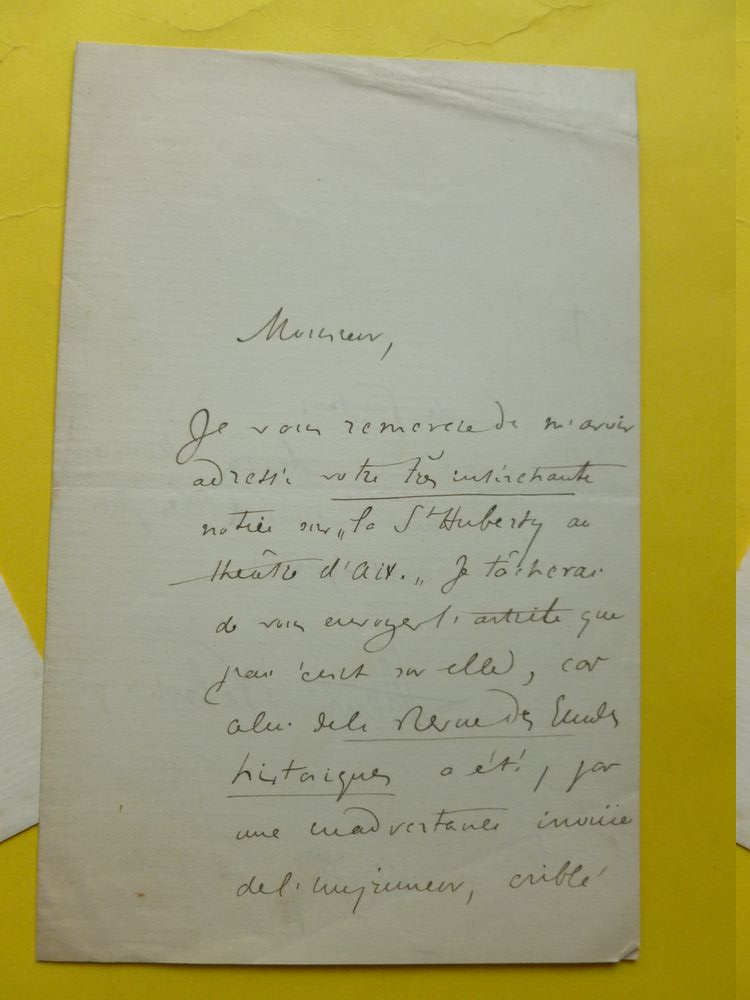 Monsieur,
Je vous remercie de m'avoir
adressé votre très intéressante
notice sur „la St Huberty au
théâtre d'Aix.„ Je tâcherai
de vous envoyer l'article que
j'ai écrit sur elle, car
celui de la Revue des Etudes
historiques a été, par
une inadvertance inouïe
de l'imprimeur, criblé